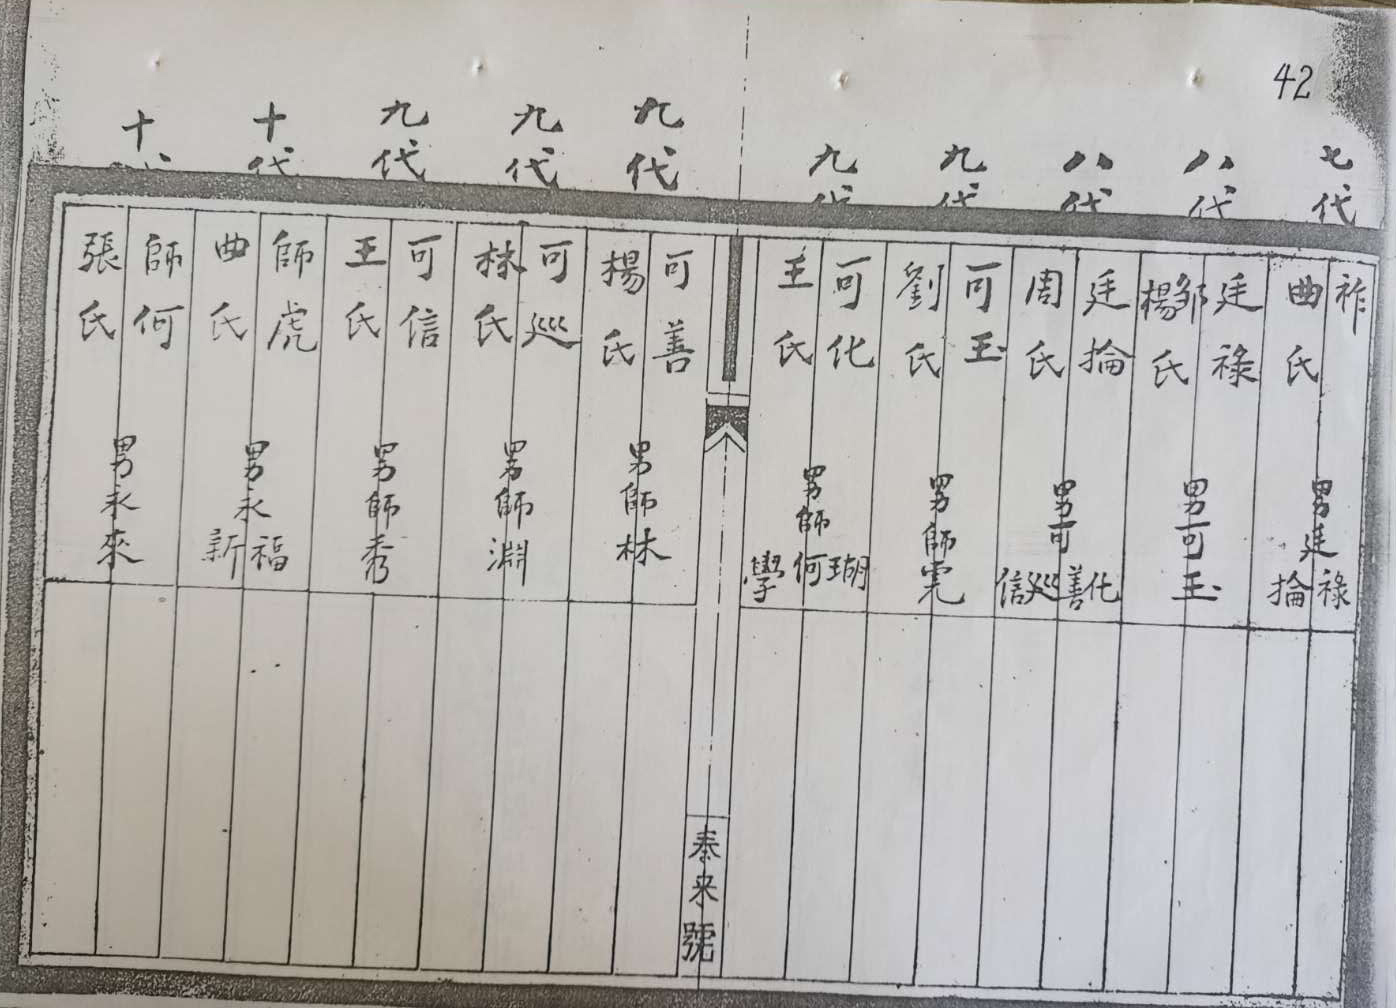 42
七代
祚
曲氏
男廷祿
掄
八代
廷祿
鄒楊氏
男可玉
八代
廷掄
周氏
男可化
善
巡
信
九代
可玉
劉氏
男師
九代
可化
王氏
男師瑚
何
學
九代
可善
楊氏
男師林
九代
可巡
林氏
男師淵
九代
可信
王氏
男師秀
十代
師虎
曲氏
男永福
新
十代
師何
張氏
男永來
來號